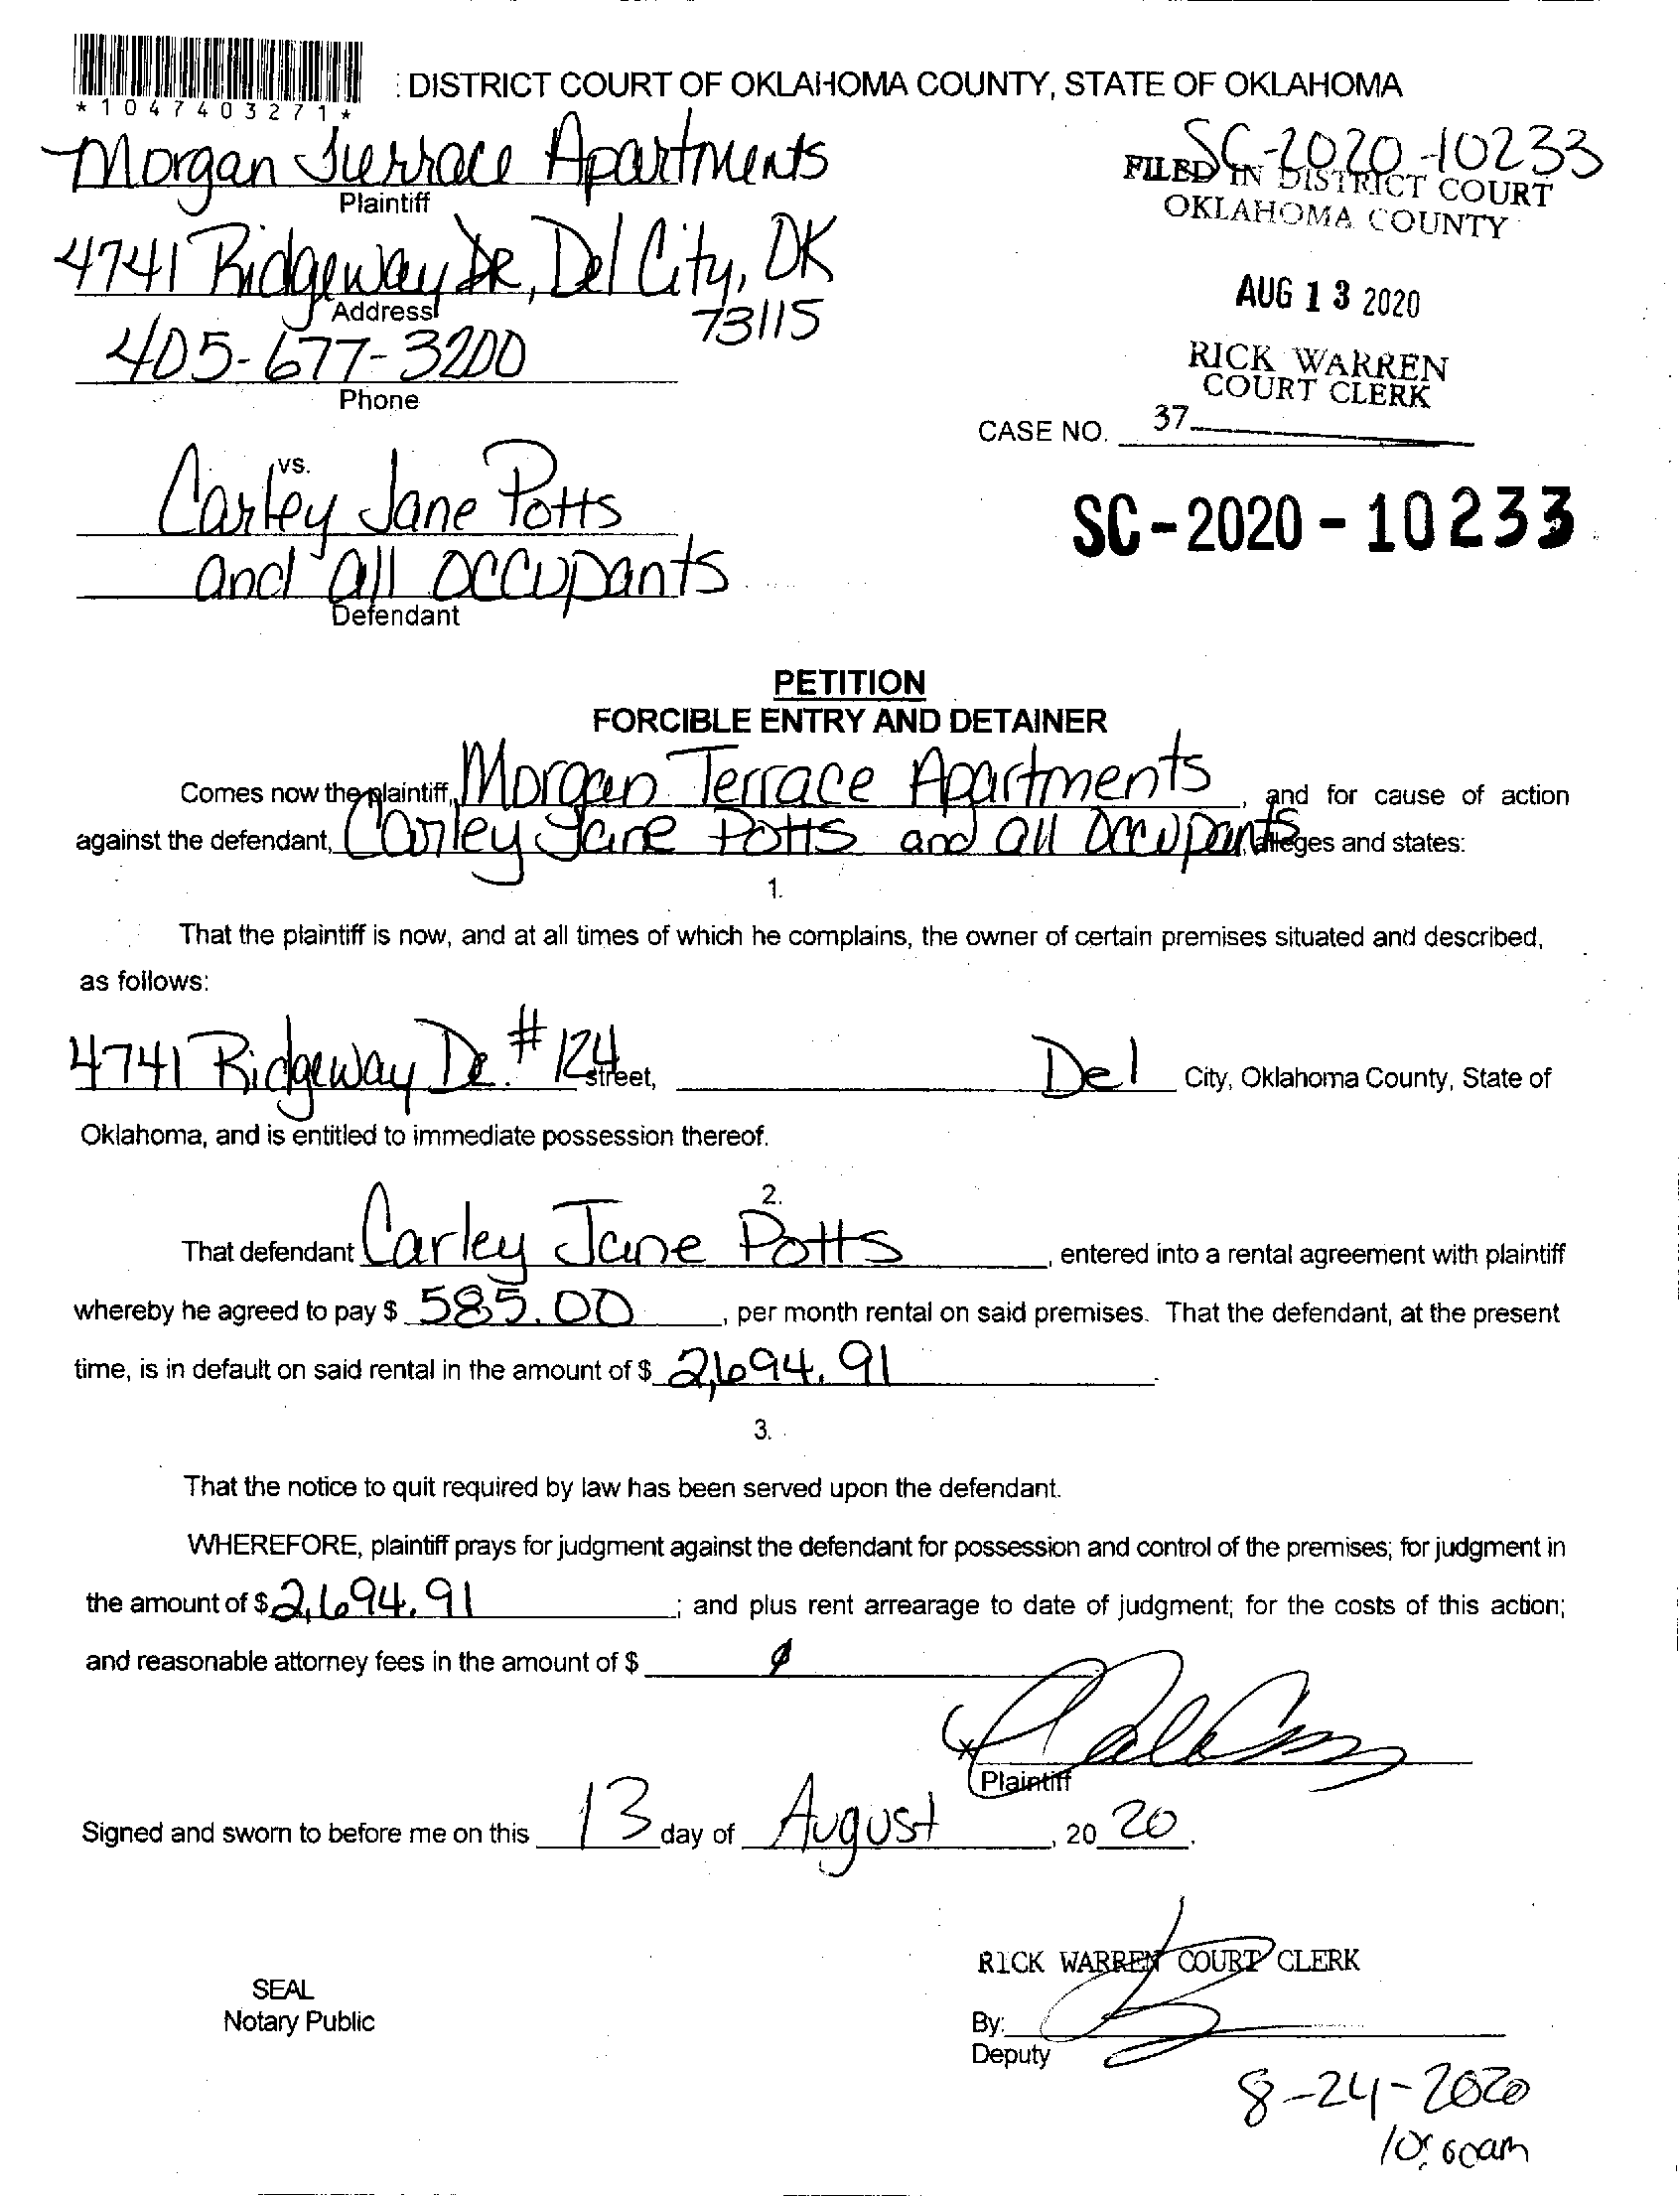 *1047403271*
: DISTRICT COURT OF OKLAHOMA COUNTY, STATE OF OKLAHOMA
Morgan Terrace Apartments
Plaintiff
SC-2020-10233
FILED IN DISTRICT COURT
OKLAHOMA COUNTY
4741 Ridgeway DR, Del City, OK
Address
73115
AUG 13 2020
405-677-3200
Phone
RICK WARREN
COURT CLERK
CASE NO. 37
vs.
Carley Jane Potts
SC-2020-10233
and all occupants
Defendant
PETITION
FORCIBLE ENTRY AND DETAINER
Comes now the plaintiff, Morgan Terrace Apartments, and for cause of action
against the defendant, Carley Jane Potts and all Occupants, alleges and states:
1.
That the plaintiff is now, and at all times of which he complains, the owner of certain premises situated and described,
as follows:
4741 Ridgeway Dr. #124 street, Del City, Oklahoma County, State of
Oklahoma, and is entitled to immediate possession thereof.
2.
That defendant Carley Jane Potts, entered into a rental agreement with plaintiff
whereby he agreed to pay $ 585.00, per month rental on said premises. That the defendant, at the present
time, is in default on said rental in the amount of $ 2,694.91.
3.
That the notice to quit required by law has been served upon the defendant.
WHEREFORE, plaintiff prays for judgment against the defendant for possession and control of the premises; for judgment in
the amount of $ 2,694.91; and plus rent arrearage to date of judgment; for the costs of this action;
and reasonable attorney fees in the amount of $ ∅
Plaintiff
Signed and sworn to before me on this 13 day of August, 2020.
RICK WARREN COURT CLERK
SEAL
Notary Public
By:
Deputy
8-24-2020
10:00am